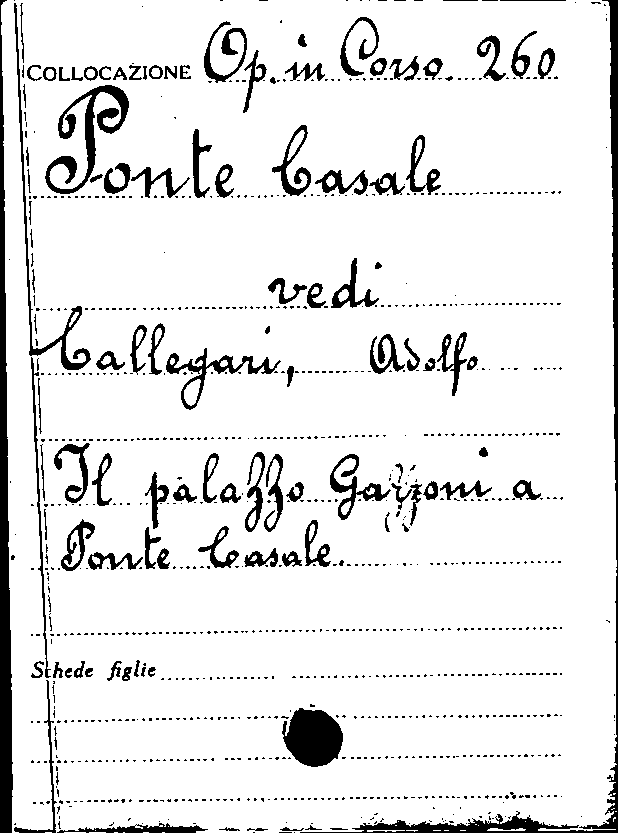 COLLOCAZIONE Op. in Corso. 260
Ponte Casale
vedi
Callegari, Adolfo
Il palazzo Gazzoni a
Ponte Casale.
Schede figlie